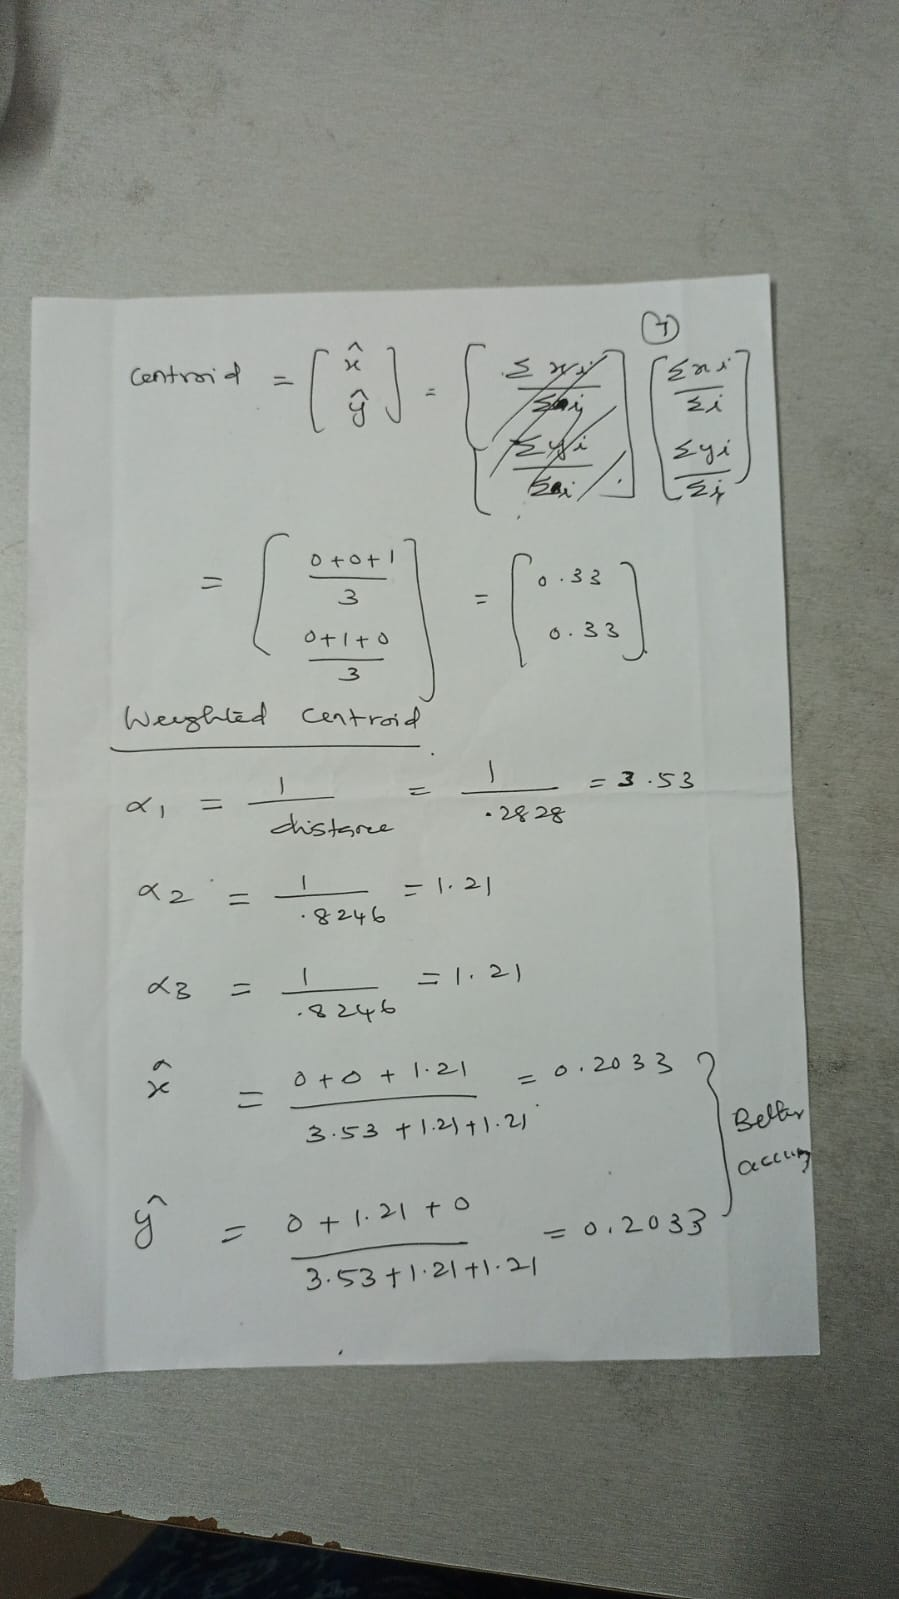 ④
Centroid = [x̂ ŷ] = [Σxi/Σi Σyi/Σi]
= [0+0+1/3 0+1+0/3] = [0.33 0.33]
Weighted Centroid
α1 = 1/distance = 1/.2828 = 3.53
α2 = 1/.8246 = 1.21
α3 = 1/.8246 = 1.21
x̂ = 0+0+1.21/3.53+1.21+1.21 = 0.2033
Better
ŷ = 0+1.21+0/3.53+1.21+1.21 = 0.2033